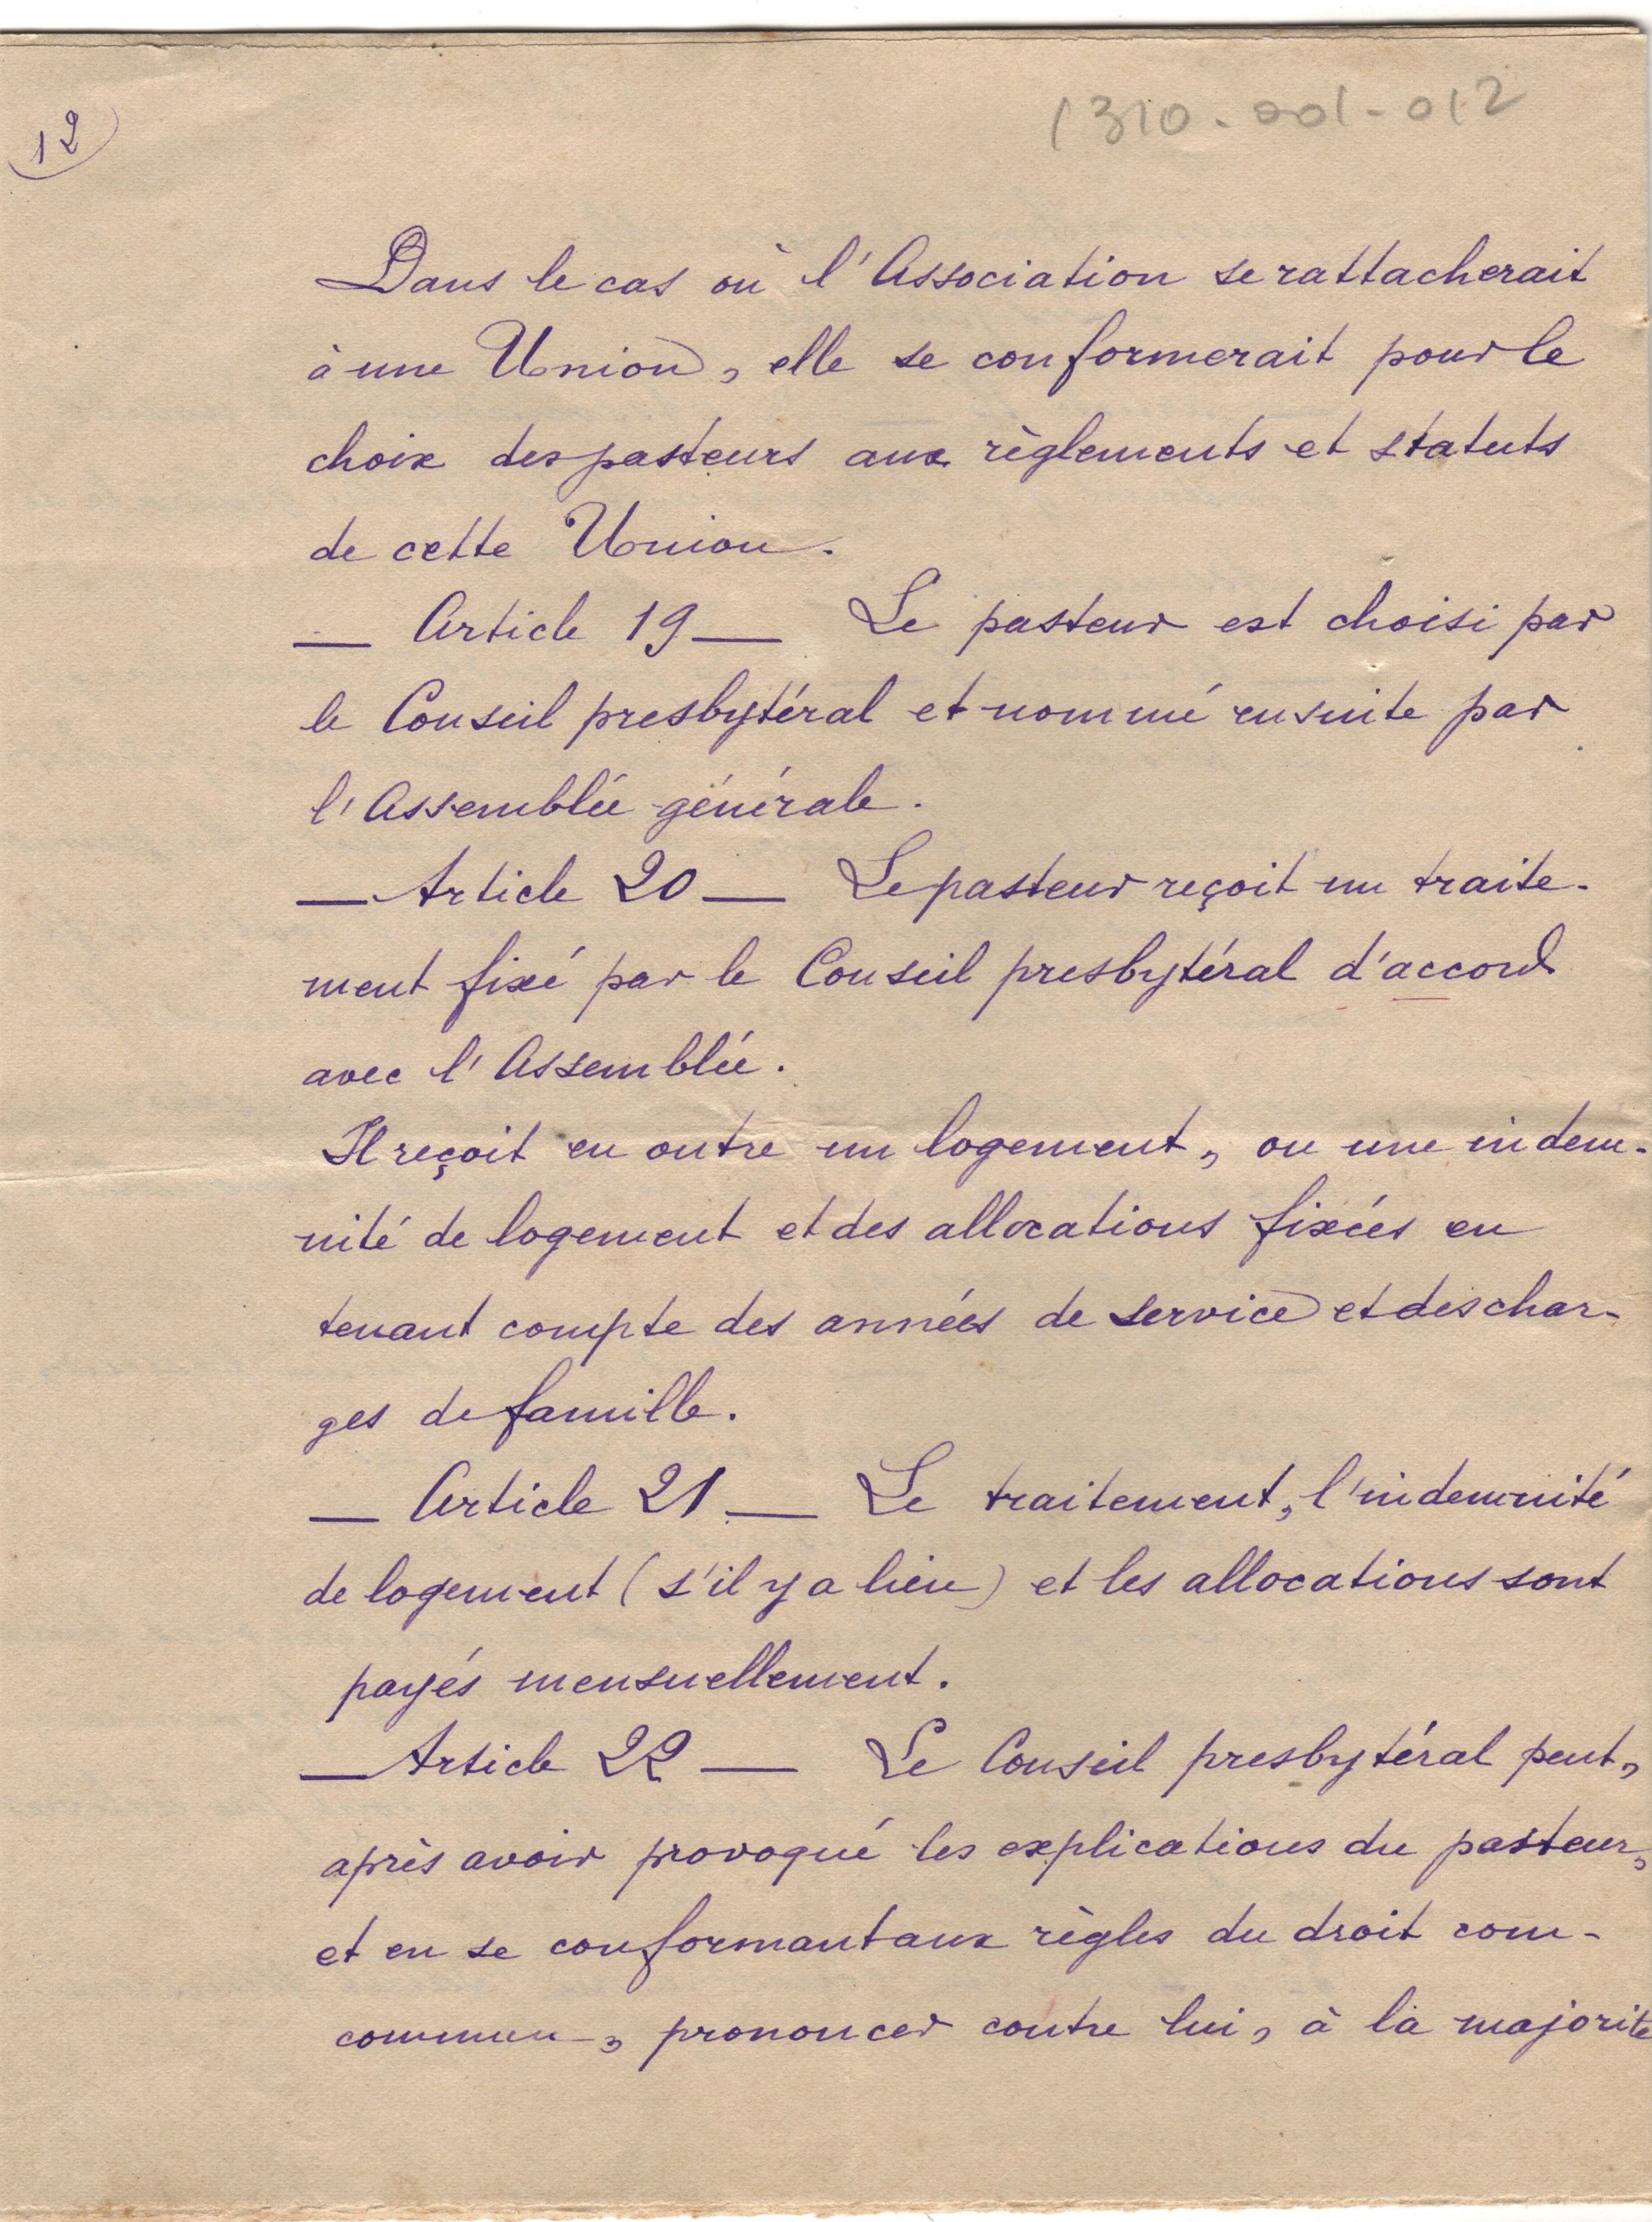 12
1310-001-012
Dans le cas où l'Association se rattacherait
à une Union, elle se conformerait pour le
choix des pasteurs aux règlements et statuts
de cette Union.
— Article 19 — Le pasteur est choisi par
le Conseil presbytéral et nommé ensuite par
l'Assemblée générale.
— Article 20 — Le pasteur reçoit un traite-
ment fixé par le Conseil presbytéral d'accord
avec l'Assemblée.
Il reçoit en outre un logement, ou une indem-
nité de logement et des allocations fixées en
tenant compte des années de service et des char-
ges de famille.
— Article 21 — Le traitement, l'indemnité
de logement (s'il y a lieu) et les allocations sont
payés mensuellement.
— Article 22 — Le Conseil presbytéral peut,
après avoir provoqué les explications du pasteur,
et en se conformant aux règles du droit com-
commun, prononcer contre lui, à la majorité